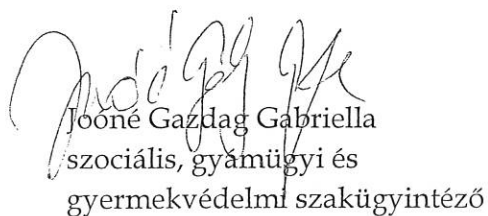 Joóné Gazdag Gabriella
szociális, gyámügyi és
gyermekvédelmi szakügyintéző